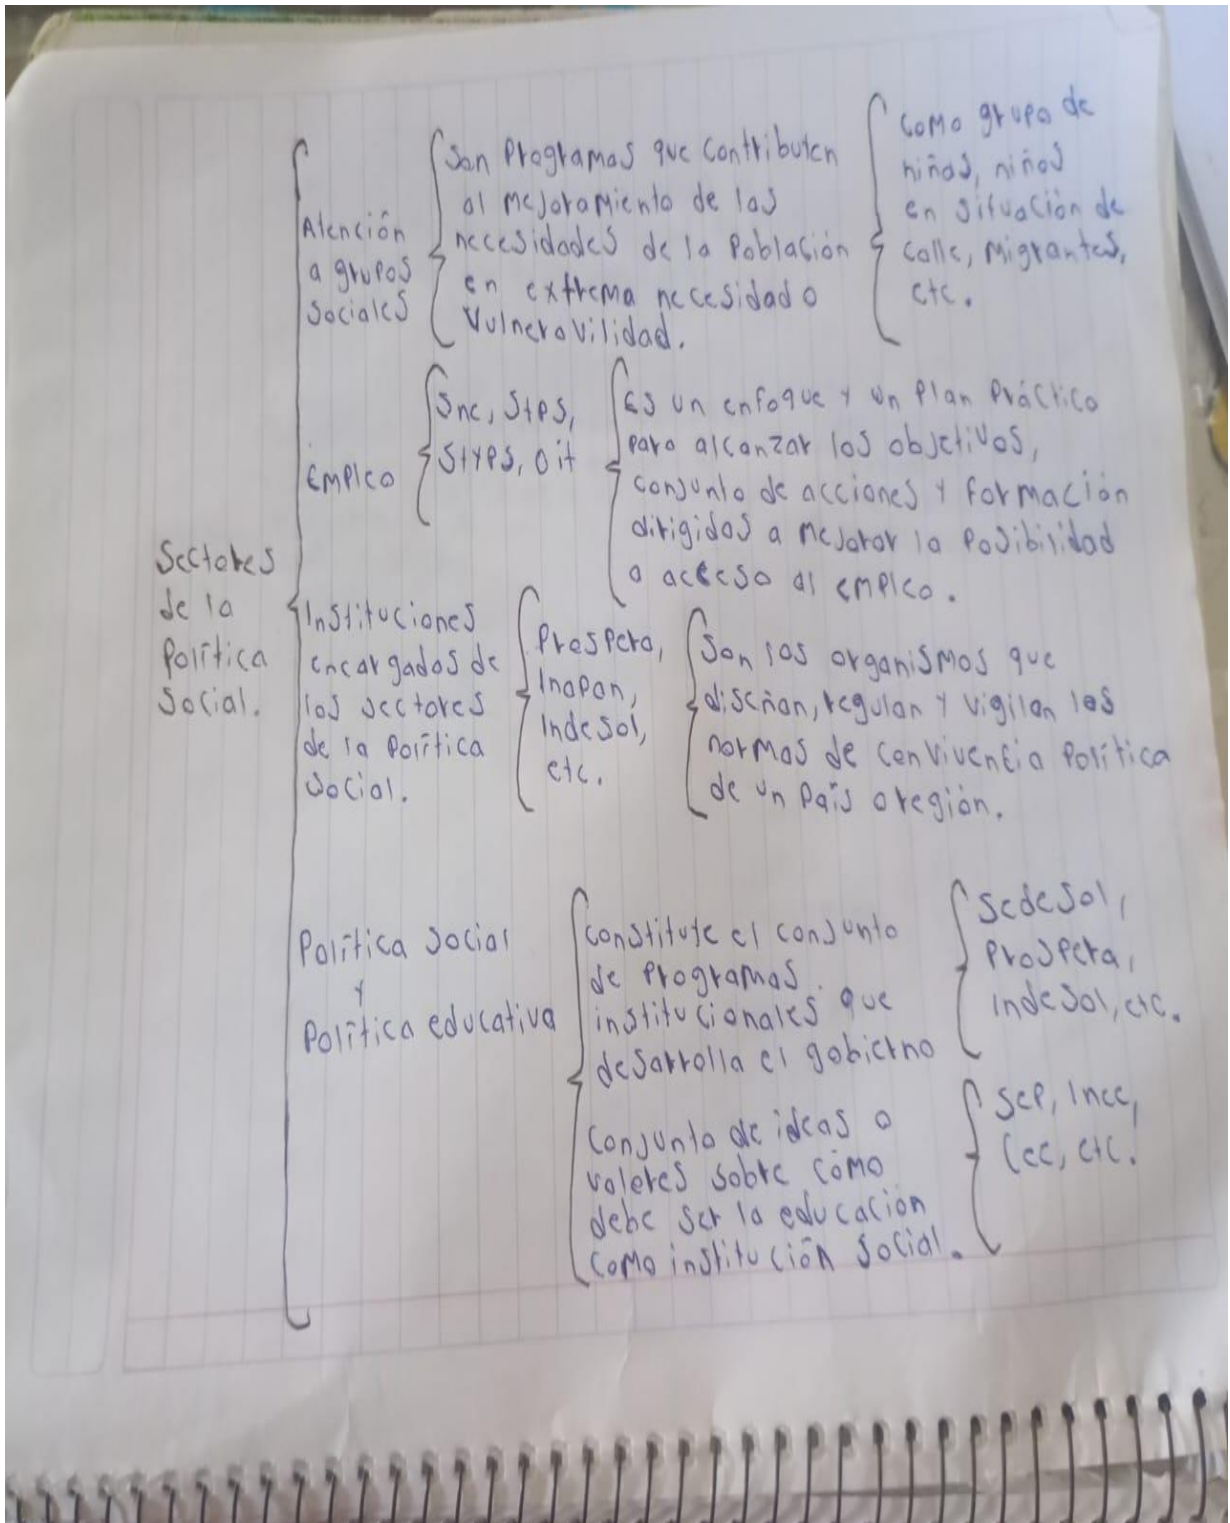 Sectores
de la
Política
Social.
Atención
a grupos
Sociales
Son Programas que contribuyen
al mejoramiento de las
necesidades de la Población
en extrema necesidad o
Vulnerovilidad.
como grupo de
niñas, niños
en situación de
calle, Migrantes,
etc.
Empleo
Sne, Stps,
Styps, oit
Es un enfoque y un Plan Práctico
para alcanzar los objetivos,
conjunto de acciones y formación
dirigidas a mejorar la Posibilidad
a acceso al empleo.
Instituciones
encargadas de
los sectores
de la Política
Social.
Prospera,
Inapan,
Indesol,
etc.
Son los organismos que
diseñan, regulan y vigilan las
normas de convivencia Política
de un País o región.
Política Social
y
Política educativa
constituye el conjunto
de Programas
institucionales que
desarrolla el gobierno
Sedesol,
Prospera,
indesol, etc.
Conjunto de ideas o
valeres sobre cómo
debe ser la educación
como institución Social.
Sep, Inee,
Cee, etc.